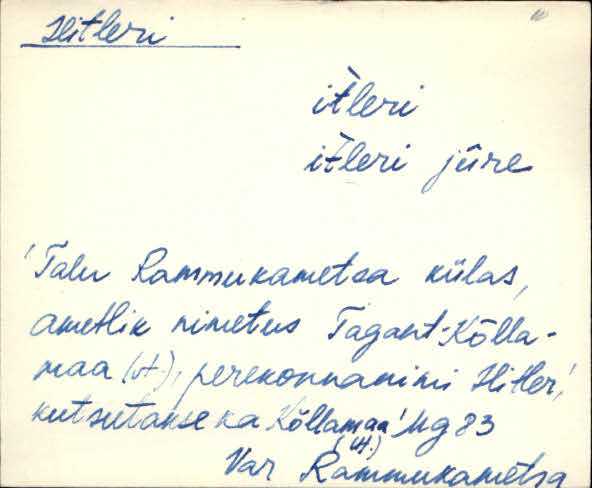 Hitleri
iťleri
iťleri jüre
'Talu Rammukametsa külas,
ametlik nimetus Tagant-Kõlla-
maa (vt.), perekonnanimi Hitler,'
kutsutakse ka Kõllamaa' Mg 83
(vt.)
Var Rammukametsa